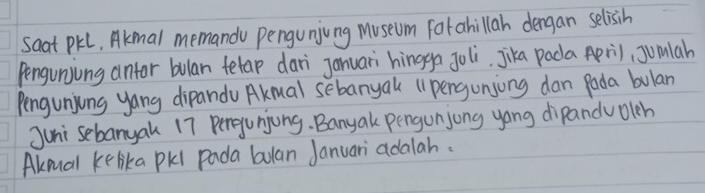 Saat PKL, Akmal memandu pengunjung Museum Fatahillah dengan selisih
Pengunjung antar bulan tetap dari Januari hingga Juli. Jika pada April, Jumlah
Pengunjung yang dipandu Akmal sebanyak 11 pengunjung dan pada bulan
Juni sebanyak 17 pengunjung. Banyak pengunjung yang dipandu oleh
Akmal ketika PKl pada bulan Januari adalah.